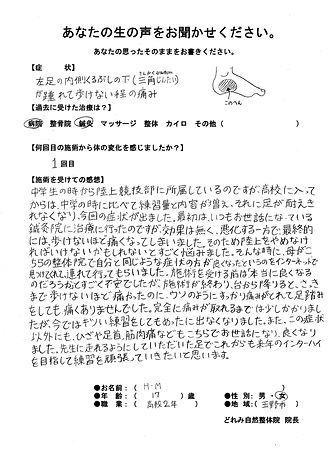 あなたの生の声をお聞かせください。
あなたの思ったそのままをお書きください。
【症　　状】
左足の内側くるぶしの下(三角じん帯)
が腫れて歩けない程の痛み
このへん
【過去に受けた治療は？】
病院　整骨院　鍼灸　マッサージ　整体　カイロ　その他（　　　　　　）
【何回目の施術から体の変化を感じましたか？】
1回目
【施術を受けての感想】
中学生の時から陸上競技部に所属しているのですが、高校に入って
からは、中学の時に比べて練習量と内容が増え、それに足が耐えき
れなくなり、今回の症状が出ました。最初は、いつもお世話になっている
鍼灸院に治療に行ったのですが、効果は無く、悪化する一方で、最終的
には、歩けないほど痛くなってしまいました。そのため陸上をやめなけ
ればいけないかもしれないとすごく悩みました。そんな時に、母がこ
ちらの整体院で自分と同じような症状の方が良くなったというのをインターネットで
見つけてくれ、連れて行ってもらいました。施術を受ける前は本当に良くなる
のだろうかとすごく不安でしたが、施術が終わり、台から降りると、さっき
まで歩けないほど痛かったのに、ウソのようにすっかり痛みがとれて足踏み
をしても痛くありませんでした。完全に痛みが取れるまでは少しかかりまし
たが、今ではキツい練習をしてもめったに出なくなりました。また、この症状
以外にも、ひざや足首、筋肉痛などもこちらでお世話になり、良くなり
ました。先生に走れるようにしていただいた足でこれからも来年のインターハイ
を目指して練習を頑張っていきたいと思います。
●お名前：（　H・M　）
●年　齢：（　17　）歳　●性　別：男・女
●職　業：（　高校2年　）　●地　域：（玉野市）
どれみ自然整体院　院長